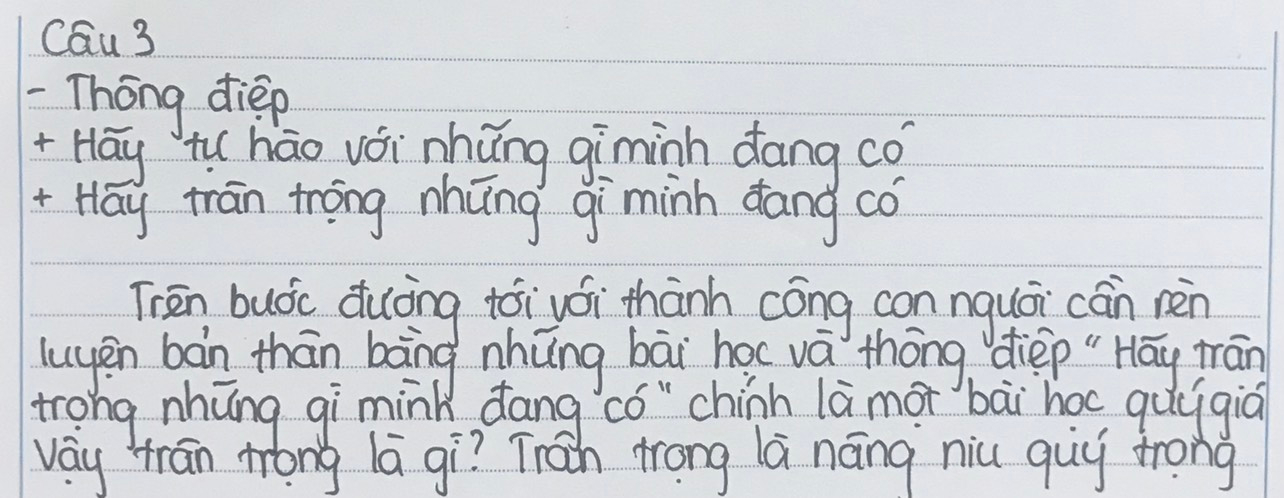 Câu 3
- Thông điệp
+ Hãy tự hào với những gì mình đang có
+ Hãy trân trọng những gì mình đang có
Trên bước đường tới với thành công con người cần rèn
luyện bản thân bằng những bài học và thông điệp "Hãy trân
trọng những gì mình đang có" chính là một bài học quý giá
Vậy trân trọng là gì? Trân trọng là nâng niu quý trọng